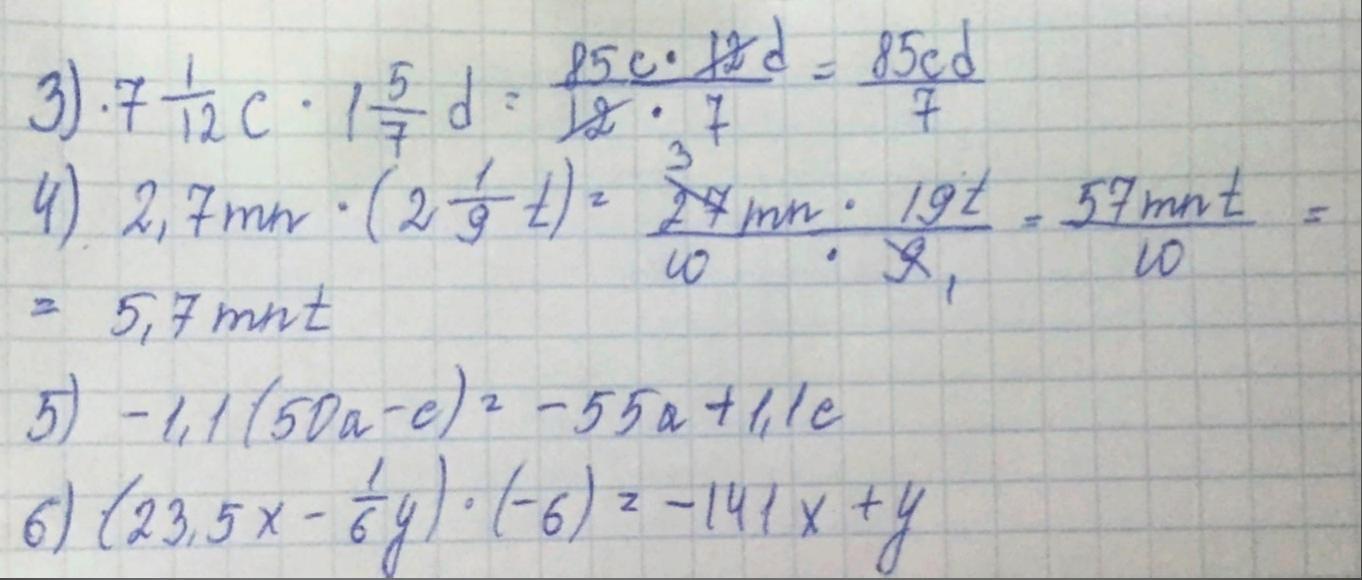 3) · 7 1/12 c · 1 5/7 d = 85c · 12d / 12 · 7 = 85cd / 7
4) 2,7mn · (2 1/9 t) = 3 27mn · 19t / 10 · 9 1 = 57mnt / 10 =
= 5,7mnt
5) -1,1(50a-c) = -55a+1,1c
6) (23,5x - 1/6 y) · (-6) = -141x + y